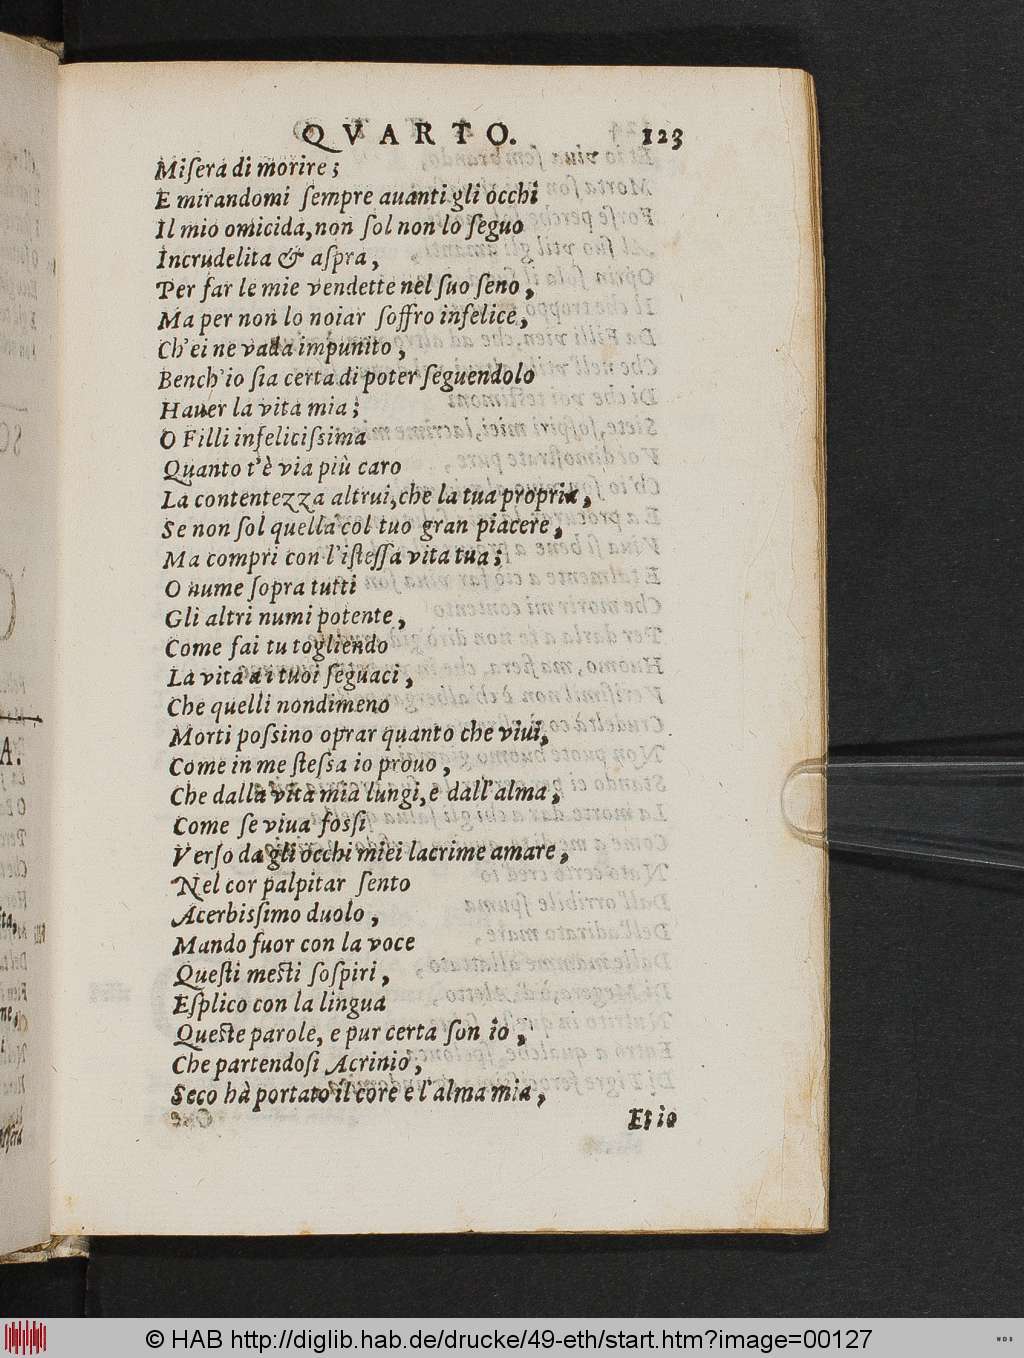 QVARTO. 123
Miſera di morire;
E mirandomi ſempre auanti gli occhi
Il mio omicida, non ſol non lo ſeguo
Incrudelita & aſpra,
Per far le mie vendette nel ſuo ſeno,
Ma per non lo noiar ſoffro infelice,
Ch'ei ne vada impunito,
Bench'io ſia certa di poter ſeguendolo
Hauer la vita mia;
O Filli infeliciſsima
Quanto t'è via più caro
La contentezza altrui, che la tua propria,
Se non ſol quella col tuo gran piacere,
Ma compri con l'iſteſſa vita tua;
O nume ſopra tutti
Gli altri numi potente,
Come fai tu togliendo
La vita ai tuoi ſeguaci,
Che quelli nondimeno
Morti poſsino oprar quanto che viui,
Come in me ſteſsa io prouo,
Che dalla vita mia lungi, e dall'alma,
Come ſe viua foſsi
Verſo da gli occhi miei lacrime amare,
Nel cor palpitar ſento
Acerbiſsimo duolo,
Mando fuor con la voce
Queſti meſti ſoſpiri,
Eſplico con la lingua
Queſte parole, e pur certa ſon io,
Che partendoſi Acrinio,
Seco hà portato il core e l'alma mia,
Et io
© HAB http://diglib.hab.de/drucke/49-eth/start.htm?image=00127